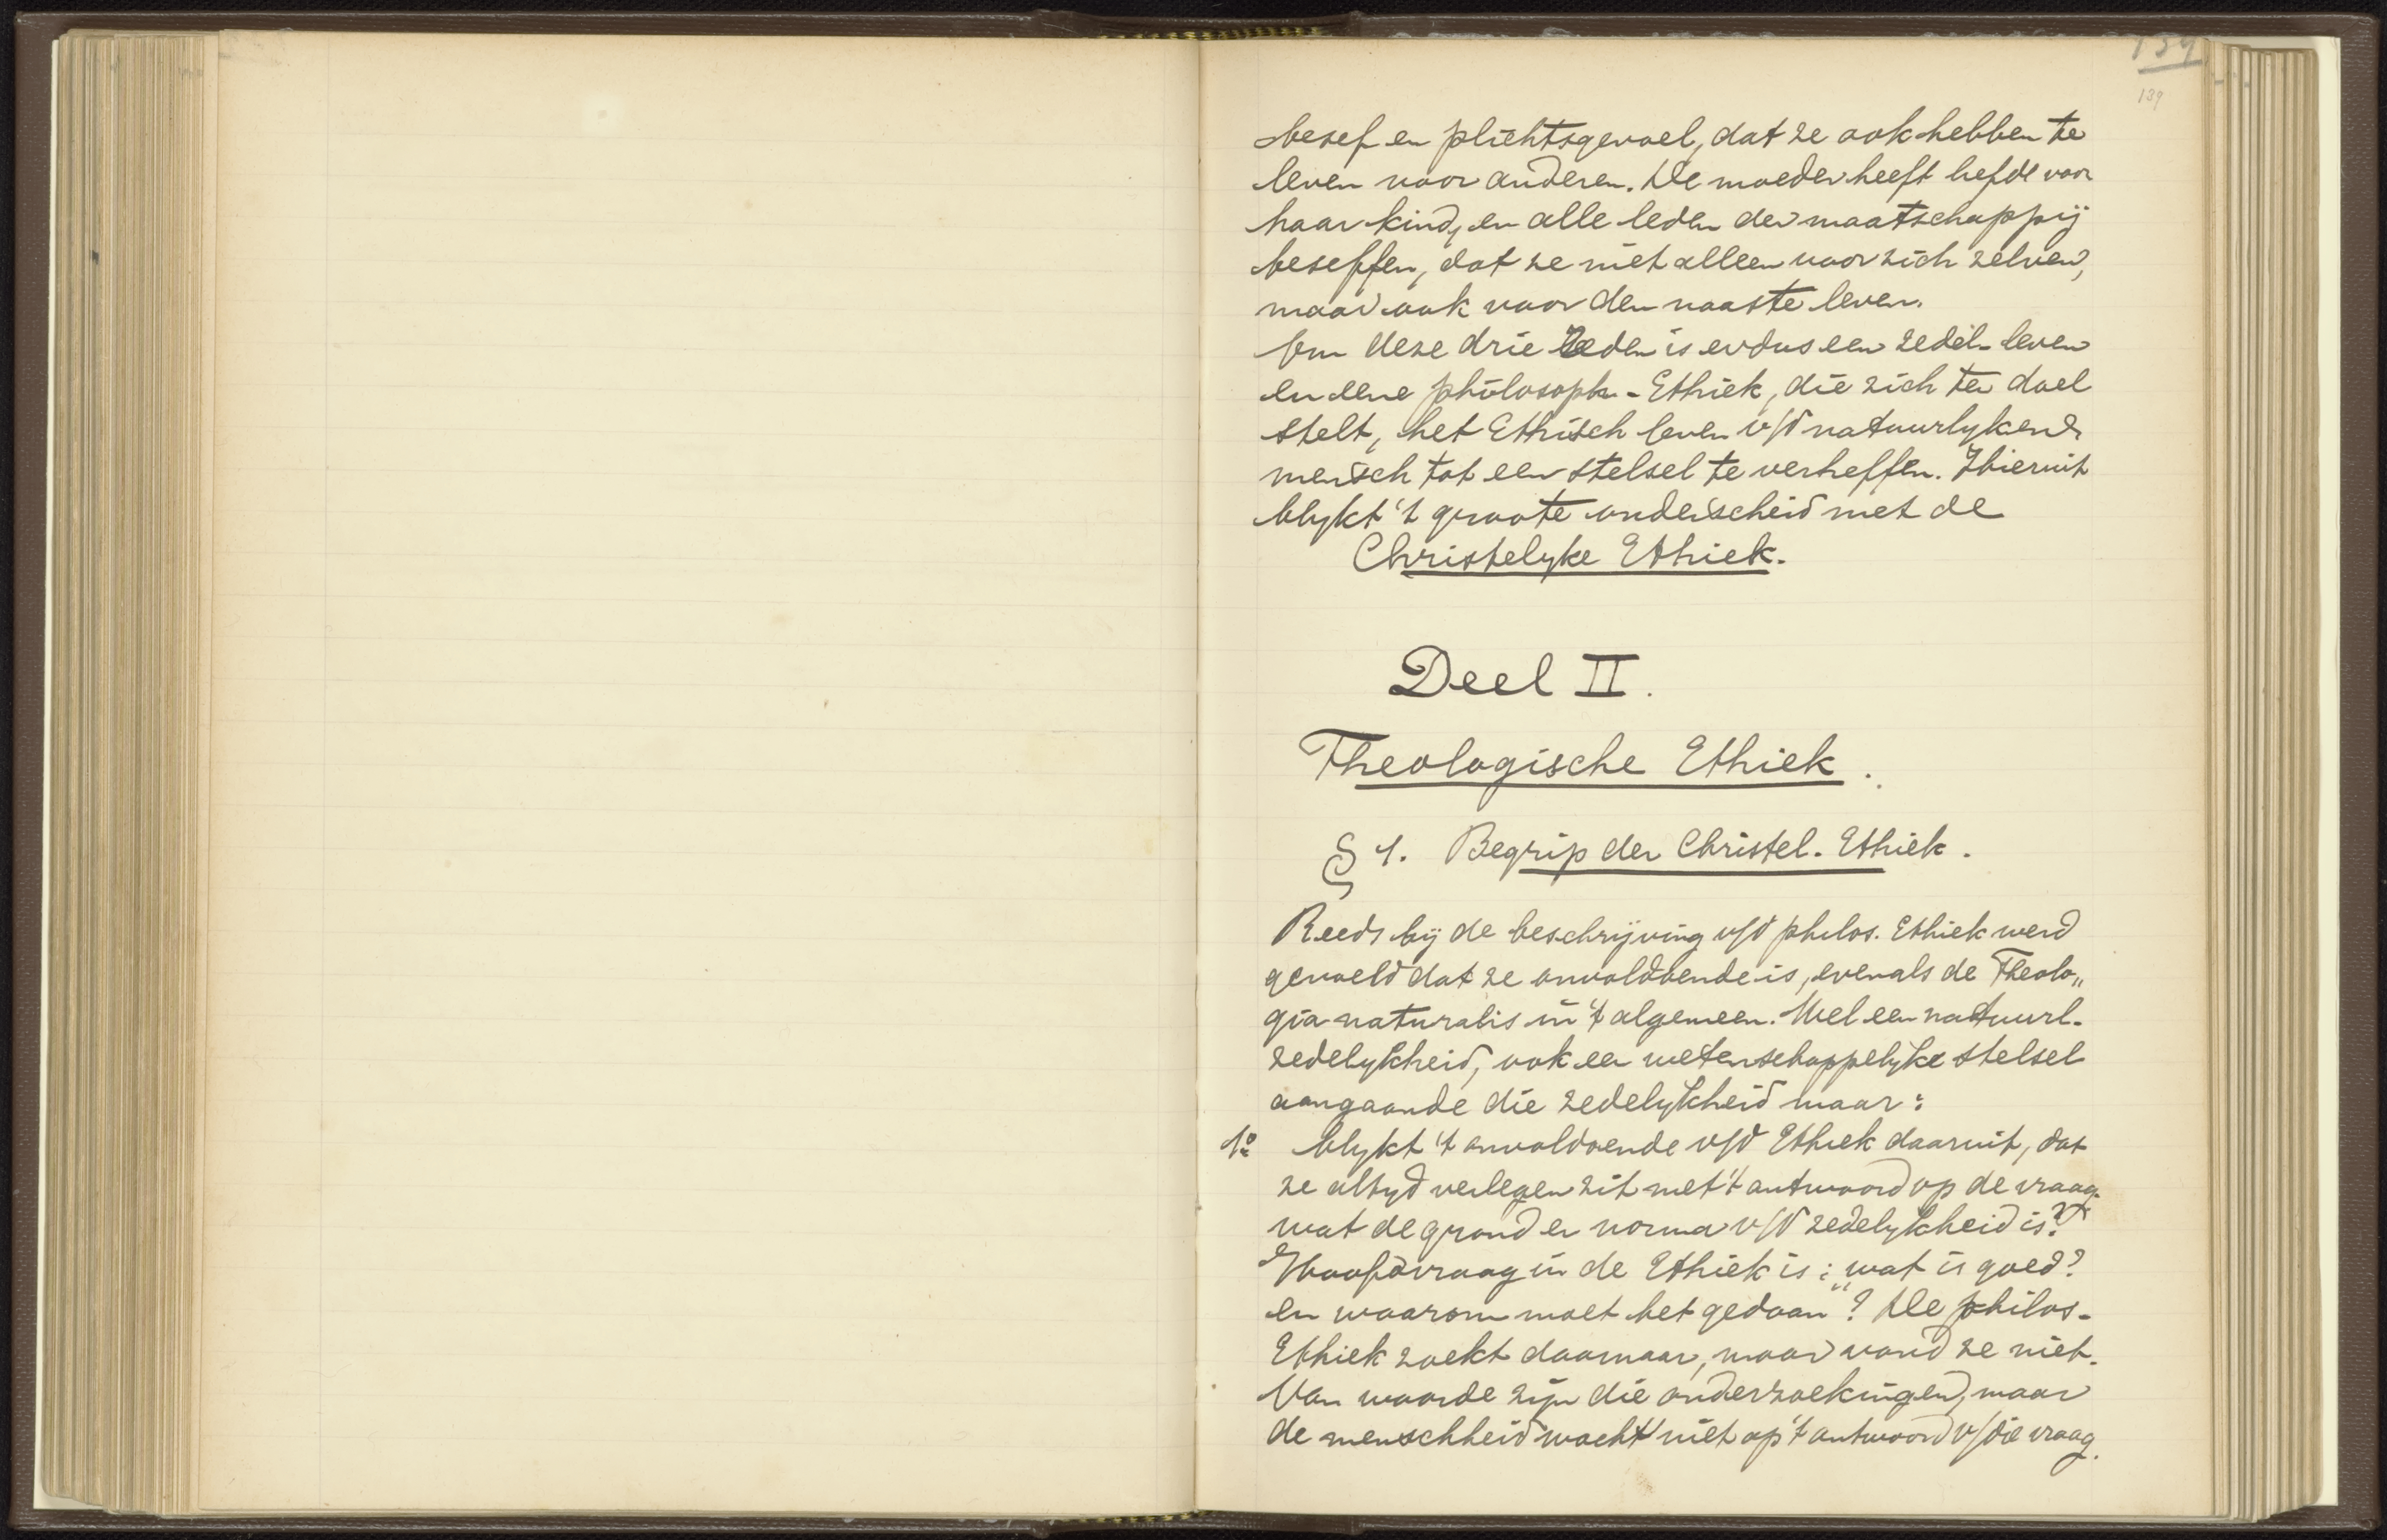 139
139
besef en plichtsgevoel, dat ze ook hebben te
leven voor anderen. De moeder heeft liefde voor
haar kind, en alle leden der maatschappij
beseffen, dat ze niet alleen voor zich zelven,
maar ook voor den naaste leven.
Om deze drie reden is er dus een zedel. leven
en eene philosoph. Ethiek, die zich ten doel
stelt, het Ethisch leven v/d natuurlyken
mensch tot een stelsel te verheffen. Hieruit
blykt 't groote onderscheid met de
Christelyke Ethiek.
Deel II.
Theologische Ethiek.
§ 1. Begrip der Christel. Ethiek.
Reeds bij de beschrijving v/d philos. Ethiek werd
gevoeld dat ze onvoldoende is, evenals de Theolo„
gia naturalis in 't algemeen. Wel een natuurl.
zedelykheid, ook een wetenschappelyke stelsel
aangaande die zedelykheid maar:
1o blykt 't onvoldoende v/d Ethiek daaruit, dat
ze altyd verlegen zit met 't antwoord op de vraag
wat de grond en norma v/d zedelykheid is?
Hoofdvraag in de Ethiek is: „wat is goed?
en waarom moet het gedaan"? De philos.
Ethiek zoekt daarnaar, maar vond ze niet.
Van waarde zijn die onderzoekingen, maar
de menschheid wacht niet op 't antwoord v/die vraag.